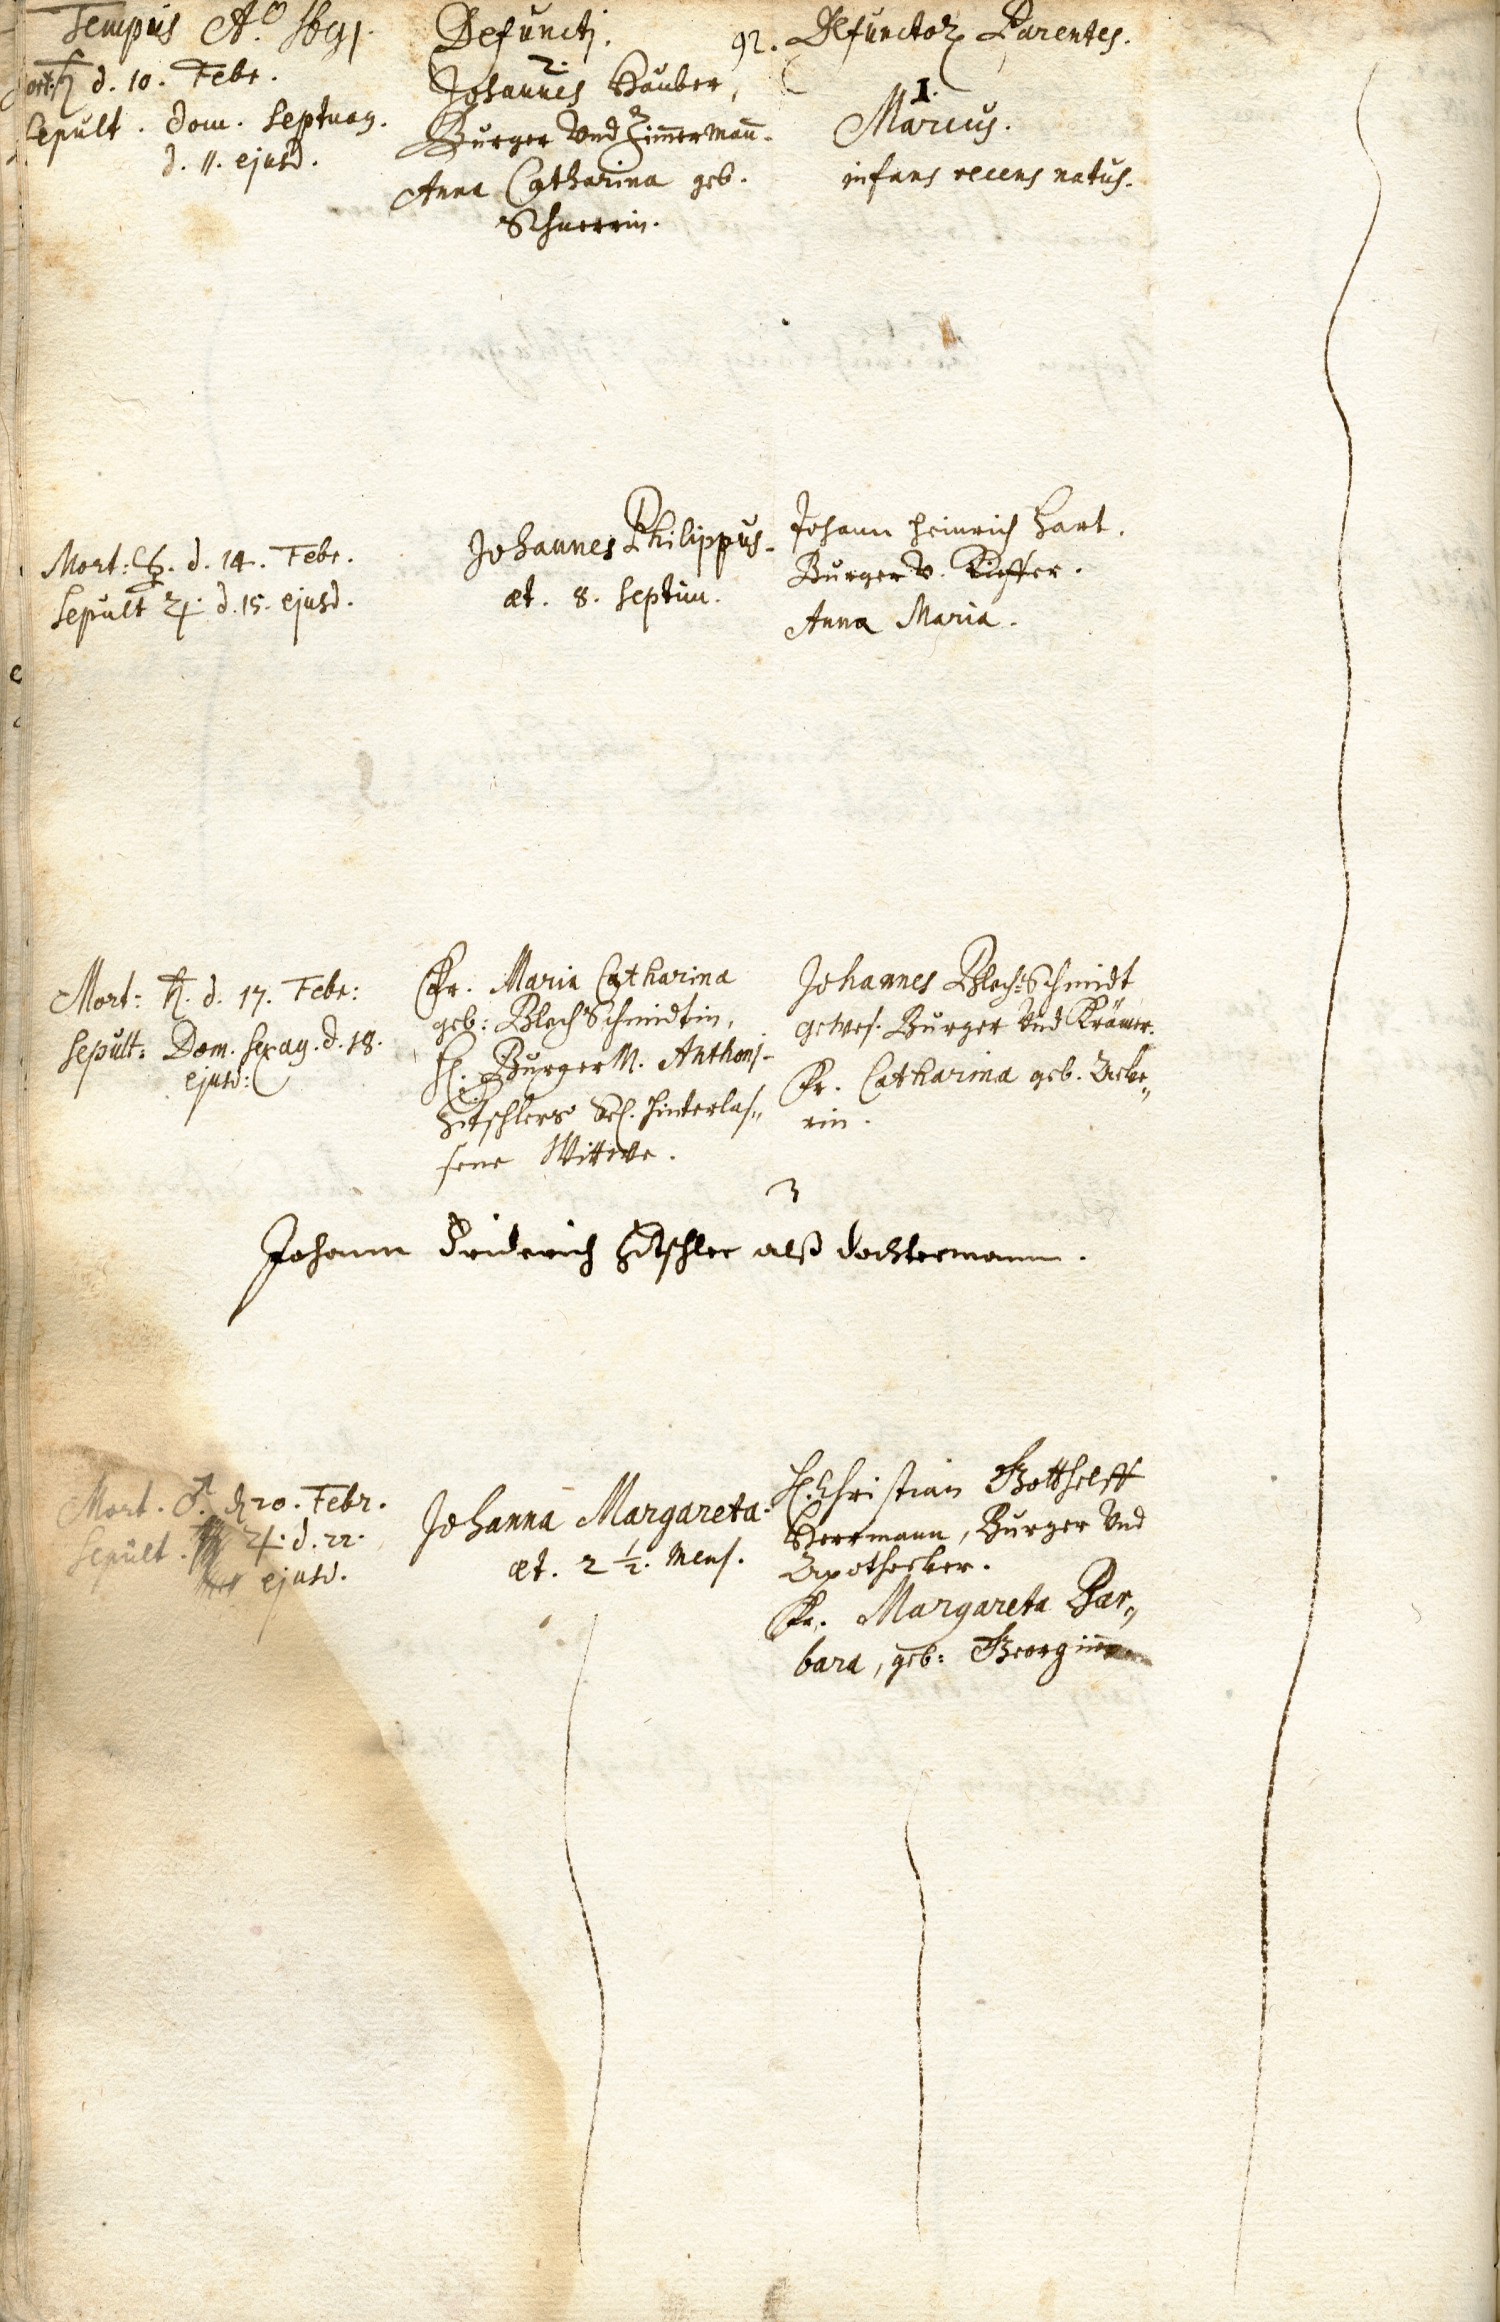 Tempus Aº 1691.
Defuncti.
92.
Defunctoꝝ Parentes.
Mort. ♄ d. 10. Febr.
Sepult. Dom. Septuag.
d. 11. ejusd.
2.
Johannes Hauber,
Burger Und Zim̄erman̄.
Anna Catharina geb.
Schnerrin.
1.
Marcus.
infans recens natus.
Mort: ☿. d. 14. Febr.
Sepult ♃. d. 15. ejusd.
Johannes Philippus.
æt. 8. Septim.
Johann Heinrich Hart.
Burger v. Kieffer.
Anna Maria.
Mort: ♄. d. 17. Febr:
Sepult: Dom. Sexag. d. 18.
ejusd:
Fr. Maria Catharina
geb: BlechSchmidtin,
H. BurgerM. Anthonj
Hitschlers Sel. hinterlas„
sene Wittwe.
Johannes BlechSchmidt
gewes. Burger Und Krämer.
Fr. Catharina geb. Acke„
rin.
3
Johann Friderich Hitschler alß dochtermann.
Mort. ♂. d. 20. Febr.
Sepult. ♃. d. 22.
ejusd.
Johanna Margareta.
æt. 2 ½. Mens.
H. Christian Gotthelff
Herrmann, Burger Und
Apothecker.
Fr. Margareta Bar„
bara, geb: Georgin